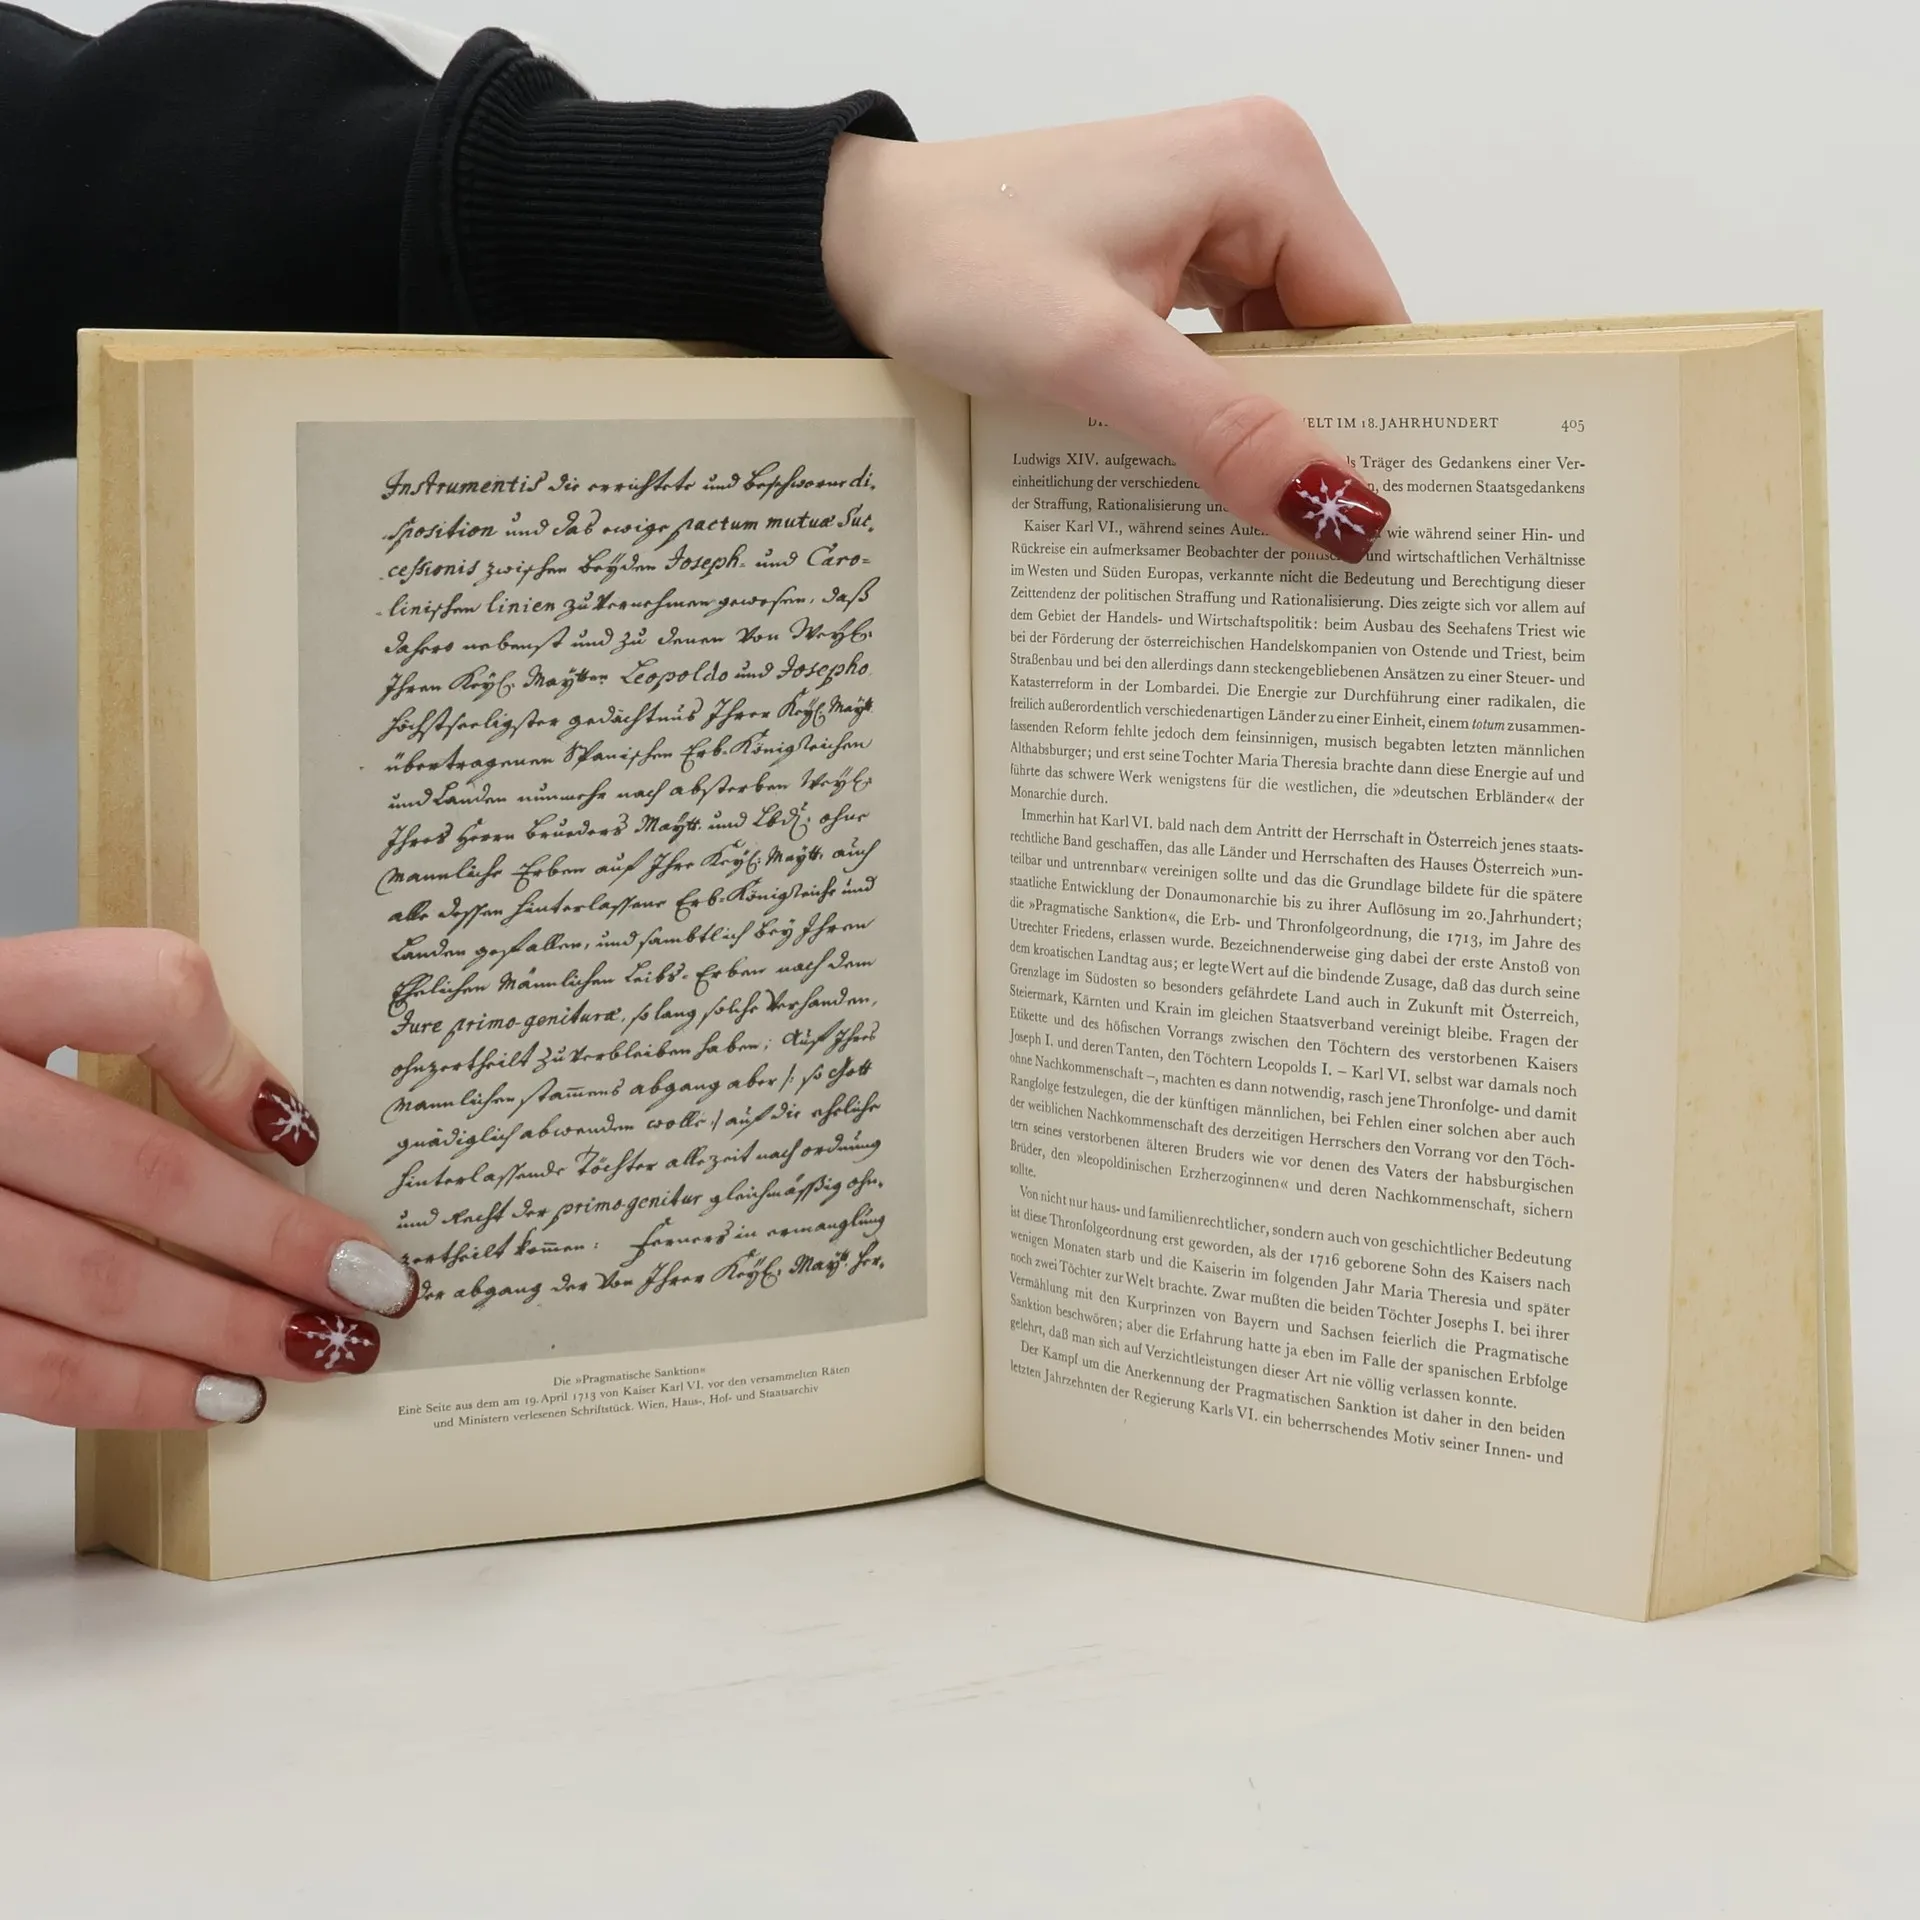 Instrumentis die errichtete und beschworne di-
sposition und das ewige pactum mutuæ Suc-
cessionis zwischen beÿden Joseph- und Caro-
linischen linien zu Vernehmen gewesen, daß
dahero nebenst und zu denen Von Weÿl:
Ihren Keÿl: Maÿtten Leopoldo und Josepho
höchstseeligster gedächtnüs Ihrer Keÿl: Maÿtt
übertragenen Spanischen Erb-Königreichen
und Landen nunmehr nach absterben Weÿl:
Ihres Herrn Brueders Maÿtt. und Lbd: ohne
Mannliche Erben auf Ihre Keÿl: Maÿtt. auch
alle dessen hinterlassene Erb-Königreiche und
Landen gefallen, und sambtlich beÿ Ihren
Ehelichen Männlichen Leibs-Erben nach dem
Jure primo-genituræ, so lang solche Verhanden,
ohnzertheilt zu Verbleiben haben; Auf Ihres
Mannlichen stam̄ens abgang aber /: so Gott
gnädiglich abwenden wolle :/ auf die eheliche
hinterlassende Töchter allezeit nach ordnung
und Recht der primo-genitur gleichmässig ohn-
zertheilt kom̄en: Ferners in ermanglung
oder abgang der Von Ihrer Keÿl: Maÿtt. her-
Die »Pragmatische Sanktion«
Eine Seite aus dem am 19. April 1713 von Kaiser Karl VI. vor den versammelten Räten
und Ministern verlesenen Schriftstück. Wien, Haus-, Hof- und Staatsarchiv
WELT IM 18. JAHRHUNDERT 405
Ludwigs XIV. als Träger des Gedankens einer Ver-
einheitlichung der des modernen Staatsgedankens
der Straffung, Rationalisierung
Kaiser Karl VI., während seines wie während seiner Hin- und
Rückreise ein aufmerksamer Beobachter der und wirtschaftlichen Verhältnisse
im Westen und Süden Europas, verkannte nicht die Bedeutung und Berechtigung dieser
Zeittendenz der politischen Straffung und Rationalisierung. Dies zeigte sich vor allem auf
dem Gebiet der Handels- und Wirtschaftspolitik: beim Ausbau des Seehafens Triest wie
bei der Förderung der österreichischen Handelskompanien von Ostende und Triest, beim
Straßenbau und bei den allerdings dann steckengebliebenen Ansätzen zu einer Steuer- und
Katasterreform in der Lombardei. Die Energie zur Durchführung einer radikalen, die
freilich außerordentlich verschiedenartigen Länder zu einer Einheit, einem totum zusammen-
fassenden Reform fehlte jedoch dem feinsinnigen, musisch begabten letzten männlichen
Althabsburger; und erst seine Tochter Maria Theresia brachte dann diese Energie auf und
führte das schwere Werk wenigstens für die westlichen, die »deutschen Erbländer« der
Monarchie durch.
Immerhin hat Karl VI. bald nach dem Antritt der Herrschaft in Österreich jenes staats-
rechtliche Band geschaffen, das alle Länder und Herrschaften des Hauses Österreich »un-
teilbar und untrennbar« vereinigen sollte und das die Grundlage bildete für die spätere
staatliche Entwicklung der Donaumonarchie bis zu ihrer Auflösung im 20. Jahrhundert;
die »Pragmatische Sanktion«, die Erb- und Thronfolgeordnung, die 1713, im Jahre des
Utrechter Friedens, erlassen wurde. Bezeichnenderweise ging dabei der erste Anstoß von
dem kroatischen Landtag aus; er legte Wert auf die bindende Zusage, daß das durch seine
Grenzlage im Südosten so besonders gefährdete Land auch in Zukunft mit Österreich,
Steiermark, Kärnten und Krain im gleichen Staatsverband vereinigt bleibe. Fragen der
Etikette und des höfischen Vorrangs zwischen den Töchtern des verstorbenen Kaisers
Joseph I. und deren Tanten, den Töchtern Leopolds I. – Karl VI. selbst war damals noch
ohne Nachkommenschaft –, machten es dann notwendig, rasch jene Thronfolge- und damit
Rangfolge festzulegen, die der künftigen männlichen, bei Fehlen einer solchen aber auch
der weiblichen Nachkommenschaft des derzeitigen Herrschers den Vorrang vor den Töch-
tern seines verstorbenen älteren Bruders wie vor denen des Vaters der habsburgischen
Brüder, den »leopoldinischen Erzherzoginnen« und deren Nachkommenschaft, sichern
sollte.
Von nicht nur haus- und familienrechtlicher, sondern auch von geschichtlicher Bedeutung
ist diese Thronfolgeordnung erst geworden, als der 1716 geborene Sohn des Kaisers nach
wenigen Monaten starb und die Kaiserin im folgenden Jahr Maria Theresia und später
noch zwei Töchter zur Welt brachte. Zwar mußten die beiden Töchter Josephs I. bei ihrer
Vermählung mit den Kurprinzen von Bayern und Sachsen feierlich die Pragmatische
Sanktion beschwören; aber die Erfahrung hatte ja eben im Falle der spanischen Erbfolge
gelehrt, daß man sich auf Verzichtleistungen dieser Art nie völlig verlassen konnte.
Der Kampf um die Anerkennung der Pragmatischen Sanktion ist daher in den beiden
letzten Jahrzehnten der Regierung Karls VI. ein beherrschendes Motiv seiner Innen- und